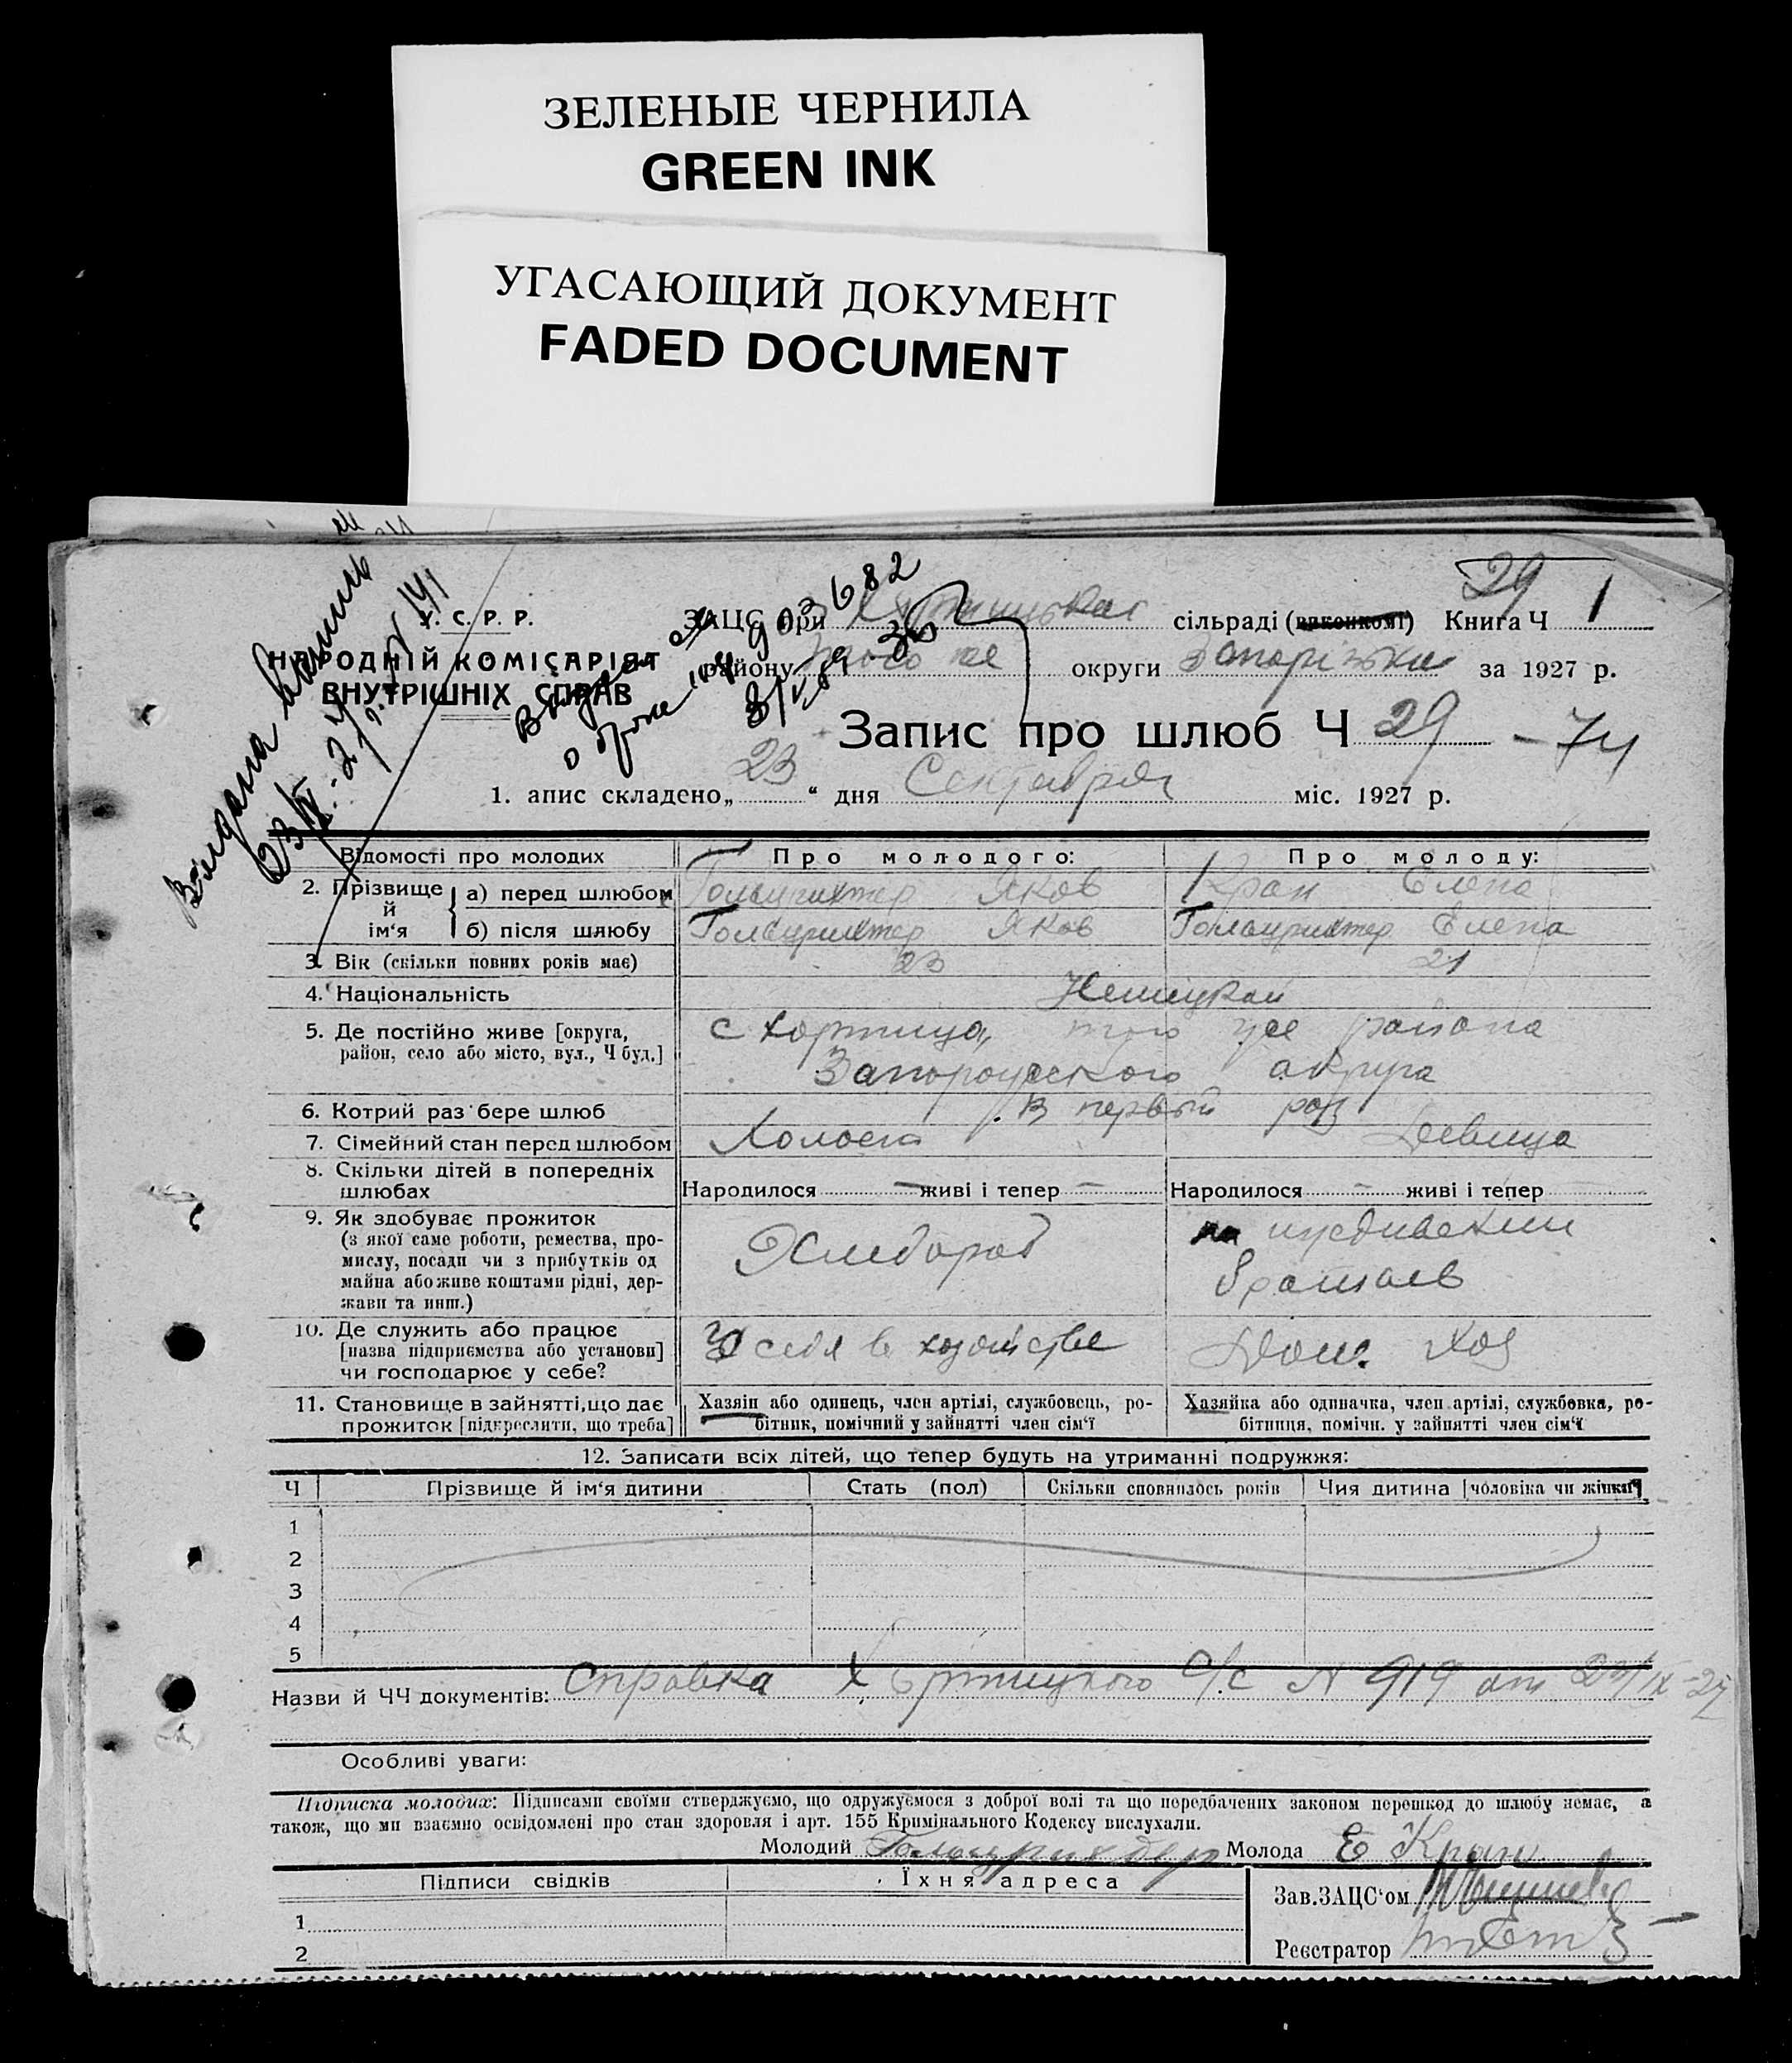 ЗЕЛЕНЫЕ ЧЕРНИЛА
GREEN INK
УГАСАЮЩИЙ ДОКУМЕНТ
FADED DOCUMENT
29
У. С. Р. Р.
НАРОДНІЙ КОМІСАРІЯТ
ВНУТРІШНІХ СПРАВ
Выдана
903682
ЗАЦС при сільраді (виконкомі) Книга Ч 1
району того же округи Запорізька за 1927 р.
Запис про шлюб Ч 29 - 74
1. апис складено „ 23 “ дня Сентября міс. 1927 р.
Відомості про молодих Про молодого: Про молоду:
2. Прізвище й ім‘я
а) перед шлюбом Яков Кран Елена
б) після шлюбу Гольцрихтер Яков Гольцрихтер Елена
3. Вік (скільки повних років має) 23 21
4. Національність Немецкой
5. Де постійно живе [округа, с Хортица, того же района
район, село або місто, вул., Ч буд.] Запорожского округа
6. Котрий раз бере шлюб В первый раз
7. Сімейний стан перед шлюбом Холост Девица
8. Скільки дітей в попередніх
шлюбах Народилося — живі і тепер — Народилося — живі і тепер
9. Як здобуває прожиток
(з якої саме роботи, ремества, про-
мислу, посади чи з прибутків од
майна або живе коштами рідні, дер-
жави та инш.) Хлебороб на иждивении
братьев
10. Де служить або працює
[назва підприємства або установи]
чи господарює у себе? У себя в хозяйстве Дом. хоз
11. Становище в зайнятті, що дає Хазяін або одинець, член артілі, службовець, ро- Хазяйка або одиначка, член артілі, службовка, ро-
прожиток [підкреслити, що треба] бітник, помічний у зайнятті член сім‘ї бітниця, помічн. у зайнятті член сім‘ї
12. Записати всіх дітей, що тепер будуть на утриманні подружжя:
Ч Прізвище й ім‘я дитини Стать (пол) Скільки сповнилось років Чия дитина [чоловіка чи жінки]
1
2
3
4
5
Назви й ЧЧ документів: Справка Хортицкого С/с N 919 от 23/IX-27
Особливі уваги:
Підписка молодих: Підписами своїми стверджуємо, що одружуємося з доброї волі та що передбачених законом перешкод до шлюбу немає, а
також, що ми взаємно освідомлені про стан здоровля і арт. 155 Кримінального Кодексу вислухали.
Молодий Молода Е Кран
Підписи свідків Їхня адреса
Зав.ЗАЦС‘ом
1
Реєстратор
2